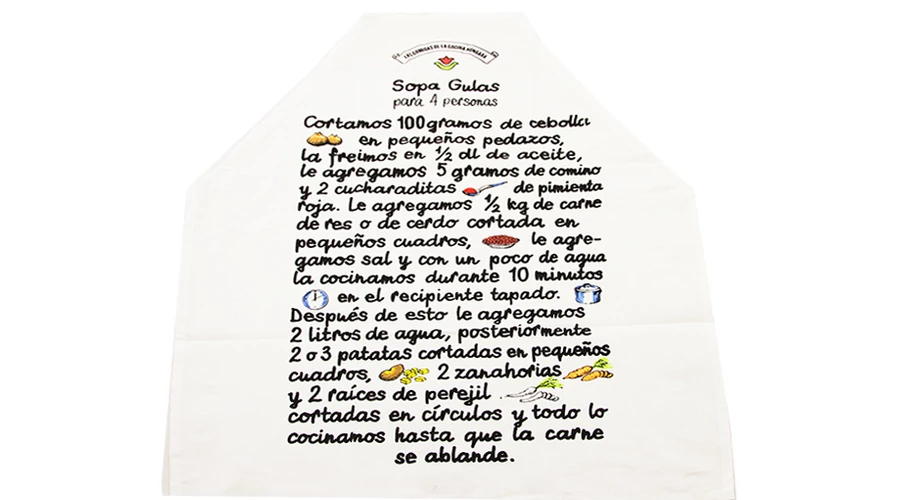 LAS COMIDAS DE LA COCINA HÚNGARA
Sopa Gulas
para 4 personas
Cortamos 100 gramos de cebolla
en pequeños pedazos,
la freimos en ½ dl de aceite,
le agregamos 5 gramos de comino
y 2 cucharaditas de pimienta
roja. Le agregamos ½ kg de carne
de res o de cerdo cortada en
pequeños cuadros, le agre-
gamos sal y con un poco de agua
la cocinamos durante 10 minutos
en el recipiente tapado.
Después de esto le agregamos
2 litros de agua, posteriormente
2 o 3 patatas cortadas en pequeños
cuadros, 2 zanahorias
y 2 raíces de perejil
cortadas en círculos y todo lo
cocinamos hasta que la carne
se ablande.